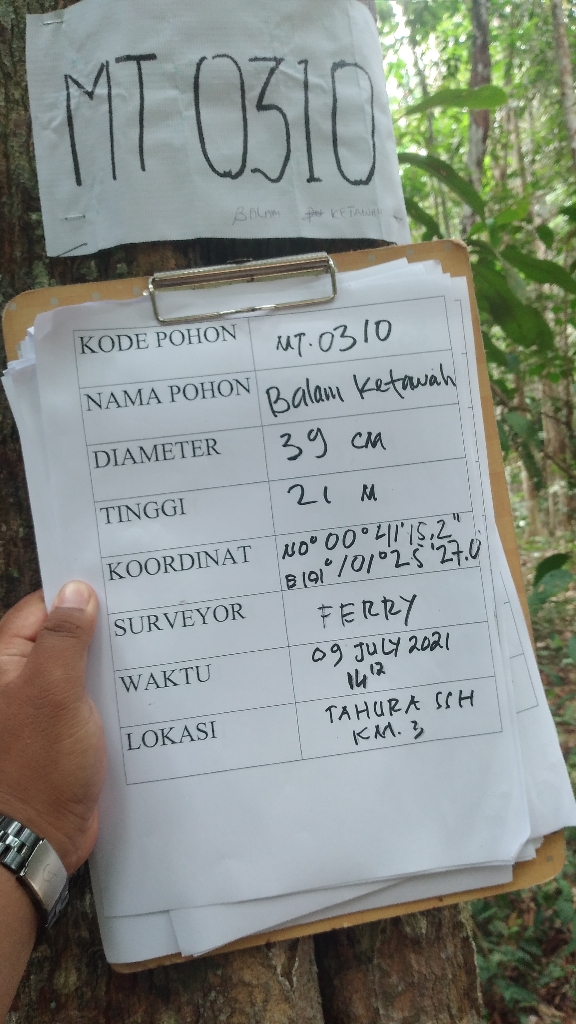 MT 0310
BALAM KETAWAH
KODE POHON MT. 0310
NAMA POHON Balam Ketawah
DIAMETER 39 CM
TINGGI 21 M
KOORDINAT N0° 00° 41' 15.2"
E101° / 01° 25' 27.0
SURVEYOR FERRY
WAKTU 09 JULY 2021
14 12
LOKASI TAHURA SSH
KM. 3